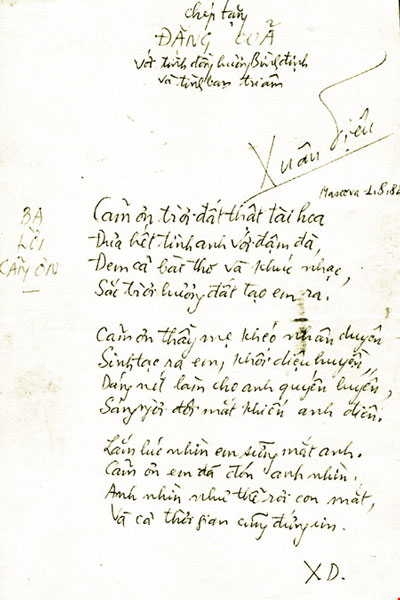 chép tặng
ĐẶNG QUÃ
với tình đồng hương Bình Định
và tình bạn tri âm
Xuân Diệu
Mascova
BA
LỜI
CẢM ƠN
Cảm ơn trời đất thật tài hoa
Đưa hết tinh anh với đậm đà,
Đem cả bài thơ và khúc nhạc,
Sắc trời hương đất tạo em ra.
Cảm ơn thầy mẹ khéo nhân duyên
Sinh tạc ra em, khôi diệu huyền,
Dáng nét làm cho anh quyến luyến,
Sáng ngời đôi mắt khiến anh điên.
Lắm lúc nhìn em sững mắt anh.
Cảm ơn em đã đón anh nhìn.
Anh nhìn như thể rơi con mắt,
Và cả thời gian cũng đứng im.
X.D.